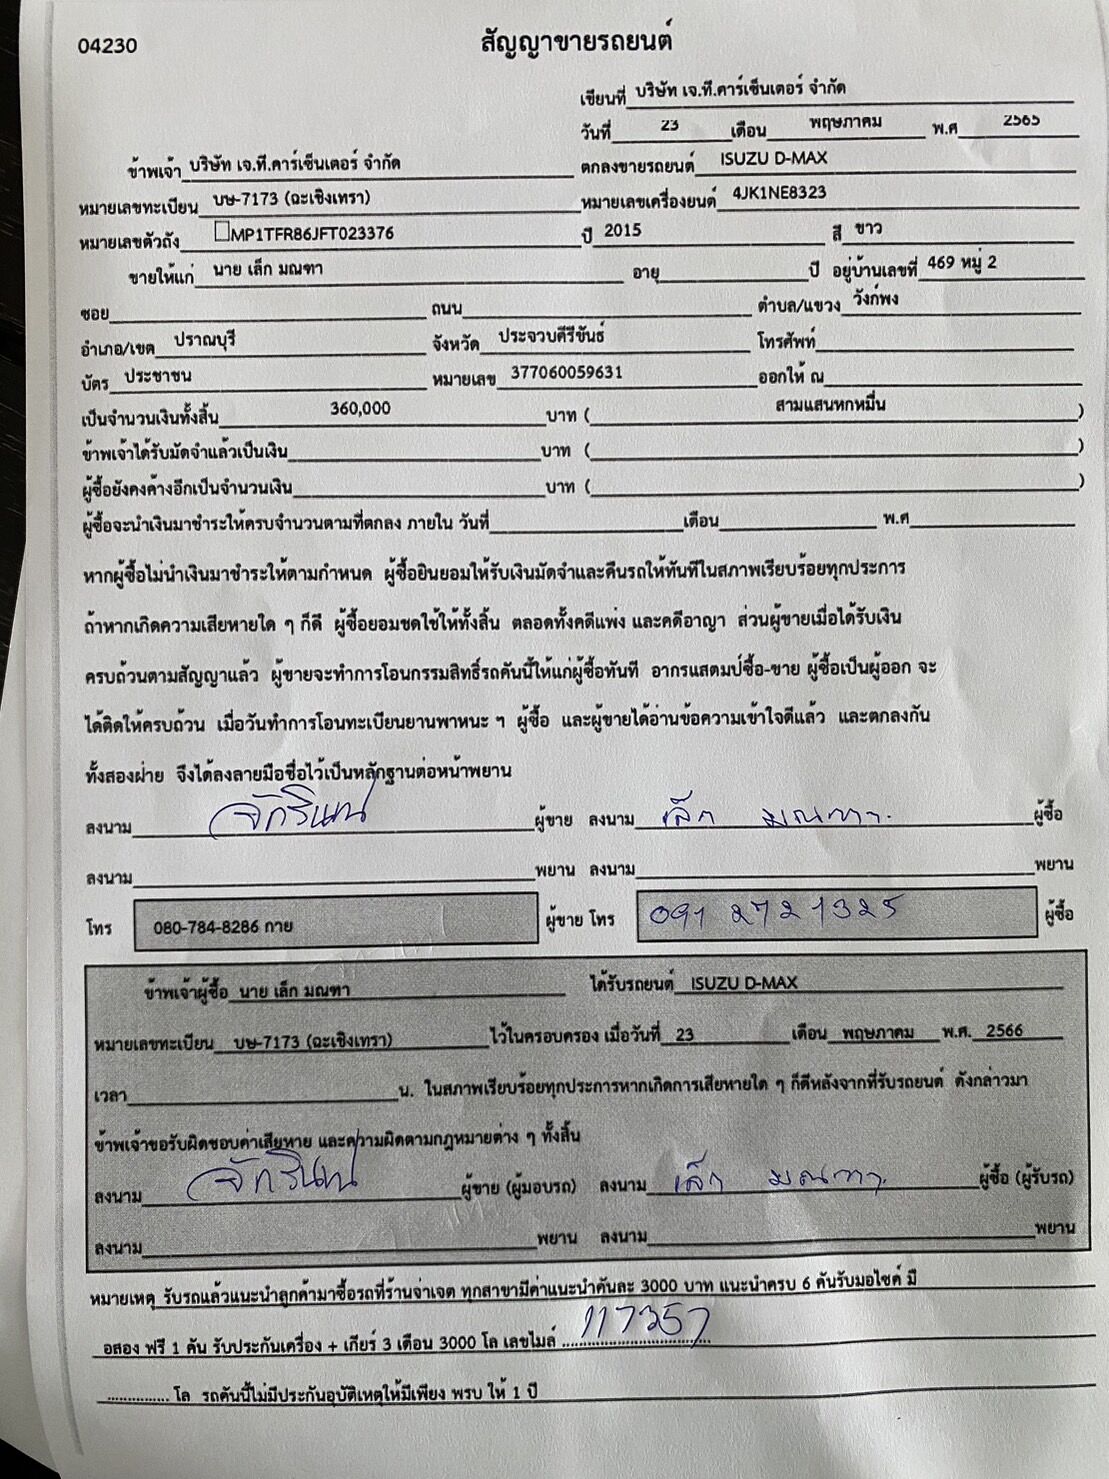 04230
สัญญาขายรถยนต์
เขียนที่ บริษัท เจ.ที.คาร์เซ็นเตอร์ จำกัด
วันที่ 23 เดือน พฤษภาคม พ.ศ 2565
ข้าพเจ้า บริษัท เจ.ที.คาร์เซ็นเตอร์ จำกัด ตกลงขายรถยนต์ ISUZU D-MAX
หมายเลขทะเบียน บษ-7173 (ฉะเชิงเทรา) หมายเลขเครื่องยนต์ 4JK1NE8323
หมายเลขตัวถัง MP1TFR86JFT023376 ปี 2015 สี ขาว
ขายให้แก่ นาย เล็ก มณฑา อายุ ปี อยู่บ้านเลขที่ 469 หมู่ 2
ซอย ถนน ตำบล/แขวง วังก์พง
อำเภอ/เขต ปราณบุรี จังหวัด ประจวบคีรีขันธ์ โทรศัพท์
บัตร ประชาชน หมายเลข 377060059631 ออกให้ ณ
เป็นจำนวนเงินทั้งสิ้น 360,000 บาท ( สามแสนหกหมื่น )
ข้าพเจ้าได้รับมัดจำแล้วเป็นเงิน บาท ( )
ผู้ซื้อยังคงค้างอีกเป็นจำนวนเงิน บาท ( )
ผู้ซื้อจะนำเงินมาชำระให้ครบจำนวนตามที่ตกลง ภายใน วันที่ เดือน พ.ศ
หากผู้ซื้อไม่นำเงินมาชำระให้ตามกำหนด ผู้ซื้อยินยอมให้รับเงินมัดจำและคืนรถให้ทันทีในสภาพเรียบร้อยทุกประการ
ถ้าหากเกิดความเสียหายใด ๆ ก็ดี ผู้ซื้อยอมชดใช้ให้ทั้งสิ้น ตลอดทั้งคดีแพ่ง และคดีอาญา ส่วนผู้ขายเมื่อได้รับเงิน
ครบถ้วนตามสัญญาแล้ว ผู้ขายจะทำการโอนกรรมสิทธิ์รถคันนี้ให้แก่ผู้ซื้อทันที อากรแสตมป์ซื้อ-ขาย ผู้ซื้อเป็นผู้ออก จะ
ได้ติดให้ครบถ้วน เมื่อวันทำการโอนทะเบียนยานพาหนะ ฯ ผู้ซื้อ และผู้ขายได้อ่านข้อความเข้าใจดีแล้ว และตกลงกัน
ทั้งสองฝ่าย จึงได้ลงลายมือชื่อไว้เป็นหลักฐานต่อหน้าพยาน
ลงนาม จักรินทน์ ผู้ขาย ลงนาม เล็ก มณฑา ผู้ซื้อ
ลงนาม พยาน ลงนาม พยาน
โทร 080-784-8286 กาย ผู้ขาย โทร 091 2721325 ผู้ซื้อ
ข้าพเจ้าผู้ซื้อ นาย เล็ก มณฑา ได้รับรถยนต์ ISUZU D-MAX
หมายเลขทะเบียน บษ-7173 (ฉะเชิงเทรา) ไว้ในครอบครอง เมื่อวันที่ 23 เดือน พฤษภาคม พ.ศ. 2566
เวลา น. ในสภาพเรียบร้อยทุกประการหากเกิดการเสียหายใด ๆ ก็ดีหลังจากที่รับรถยนต์ ดังกล่าวมา
ข้าพเจ้าขอรับผิดชอบค่าเสียหาย และความผิดตามกฎหมายต่าง ๆ ทั้งสิ้น
ลงนาม จักรินทน์ ผู้ขาย (ผู้มอบรถ) ลงนาม เล็ก มณฑา ผู้ซื้อ (ผู้รับรถ)
ลงนาม พยาน ลงนาม พยาน
หมายเหตุ รับรถแล้วแนะนำลูกค้ามาซื้อรถที่ร้านจ่าเจต ทุกสาขามีค่าแนะนำคันละ 3000 บาท แนะนำครบ 6 คันรับมอไซค์ มี
อสอง ฟรี 1 คัน รับประกันเครื่อง + เกียร์ 3 เดือน 3000 โล เลขไมล์ 117357
.............. โล รถคันนี้ไม่มีประกันอุบัติเหตุให้มีเพียง พรบ ให้ 1 ปี